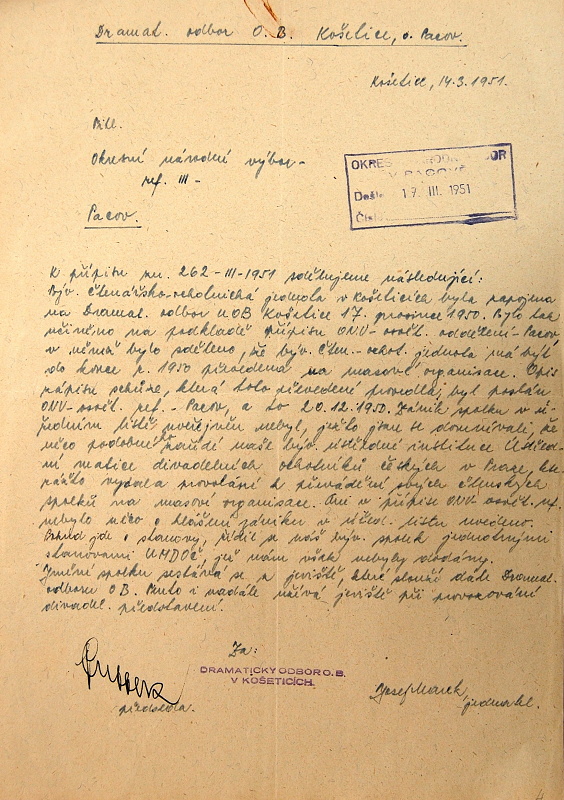 Dramat. odbor O. B. Košetice, o. Pacov.
Košetice, 14.3.1951.
Okresní národní výbor-
ref. III -
Pacov.
OKRES
V PACOVĚ
Došlo 17. III. 1951
Číslo
K přípisu zn. 262-III-1951 sdělujeme následující:
Býv. čtenářsko-ochotnická jednota v Košeticích byla zapojena
na Dramat. odbor OB Košetice 17. prosince 1950. Bylo tak
učiněno na podkladě přípisu ONV-osvět. oddělení-Pacov,
v němž bylo sděleno, že býv. čten.-ochot. jednota má být
do konce r. 1950 převedena na masové organisace. Opis
zápisu schůze, která toto převedení provedla, byl poslán
ONV-osvět. ref. - Pacov, a to 20.12.1950. Zánik spolku v ú-
ředním listě uveřejněn nebyl, ježto jsme se domnívali, že
něco podobného zařídí naše býv. ústřední instituce Ústřed-
ní matice divadelních ochotníků českých v Praze, kte-
rážto vydala provolání k převádění svých členských
spolků na masové organisace. Ani v přípise ONV-osvět. ref.
nebylo něco o hlášení zániku v úřed. listu uvedeno.
Pokud jde o stanovy, řídil se náš býv. spolek jednotnými
stanovami ÚMDOČ, jež nám však nebyly dodány.
Jmění spolku sestává se z jeviště, které slouží dále Dramat.
odboru OB. Tento i nadále užívá jeviště při provozování
divadel. představení.
Za:
DRAMATICKÝ ODBOR O.B.
V KOŠETICÍCH.
předseda.
Josef Marek,
jednatel.